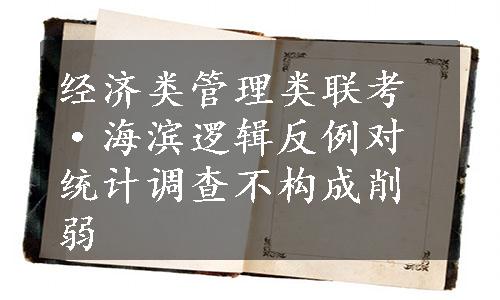 经济类管理类联考
·海滨逻辑反例对
统计调查不构成削
弱